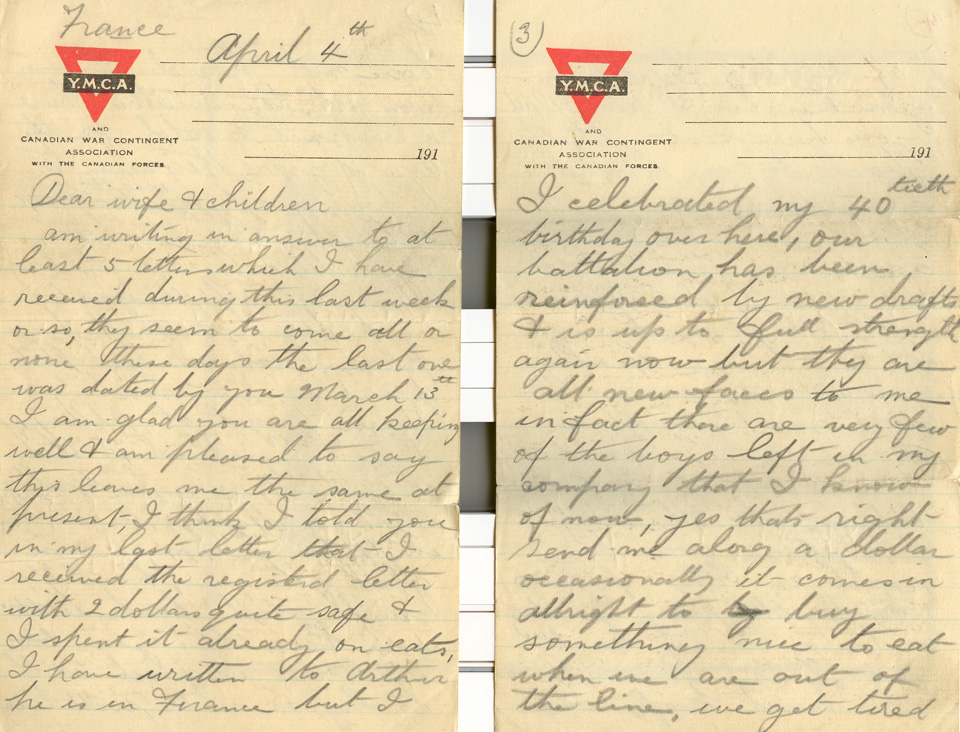 France
April 4th
Y.M.C.A.
AND
CANADIAN WAR CONTINGENT
ASSOCIATION
WITH THE CANADIAN FORCES.
191
Dear wife & children
am writing in answer to at
least 5 letters which I have
received during this last week
or so, they seem to come all or
none these days the last one
was dated by you March 13th
I am glad you are all keeping
well & am pleased to say
this leaves me the same at
present, I think I told you
in my last letter that I
received the registerd letter
with 2 dollars quite safe &
I spent it already on eats,
I have written to Arthur
he is in France but I
3
Y.M.C.A.
AND
CANADIAN WAR CONTINGENT
ASSOCIATION
WITH THE CANADIAN FORCES.
191
I celebrated my 40tieth
birthday over here, our
battalion has been
reinforced by new drafts
& is up to full strength
again now but they are
all new faces to me
in fact there are very few
of the boys left in my
company that I know
of now, yes thats right
send me along a dollar
occasionally it comes in
allright to buy
something nice to eat
when we are out of
the line, we get tired